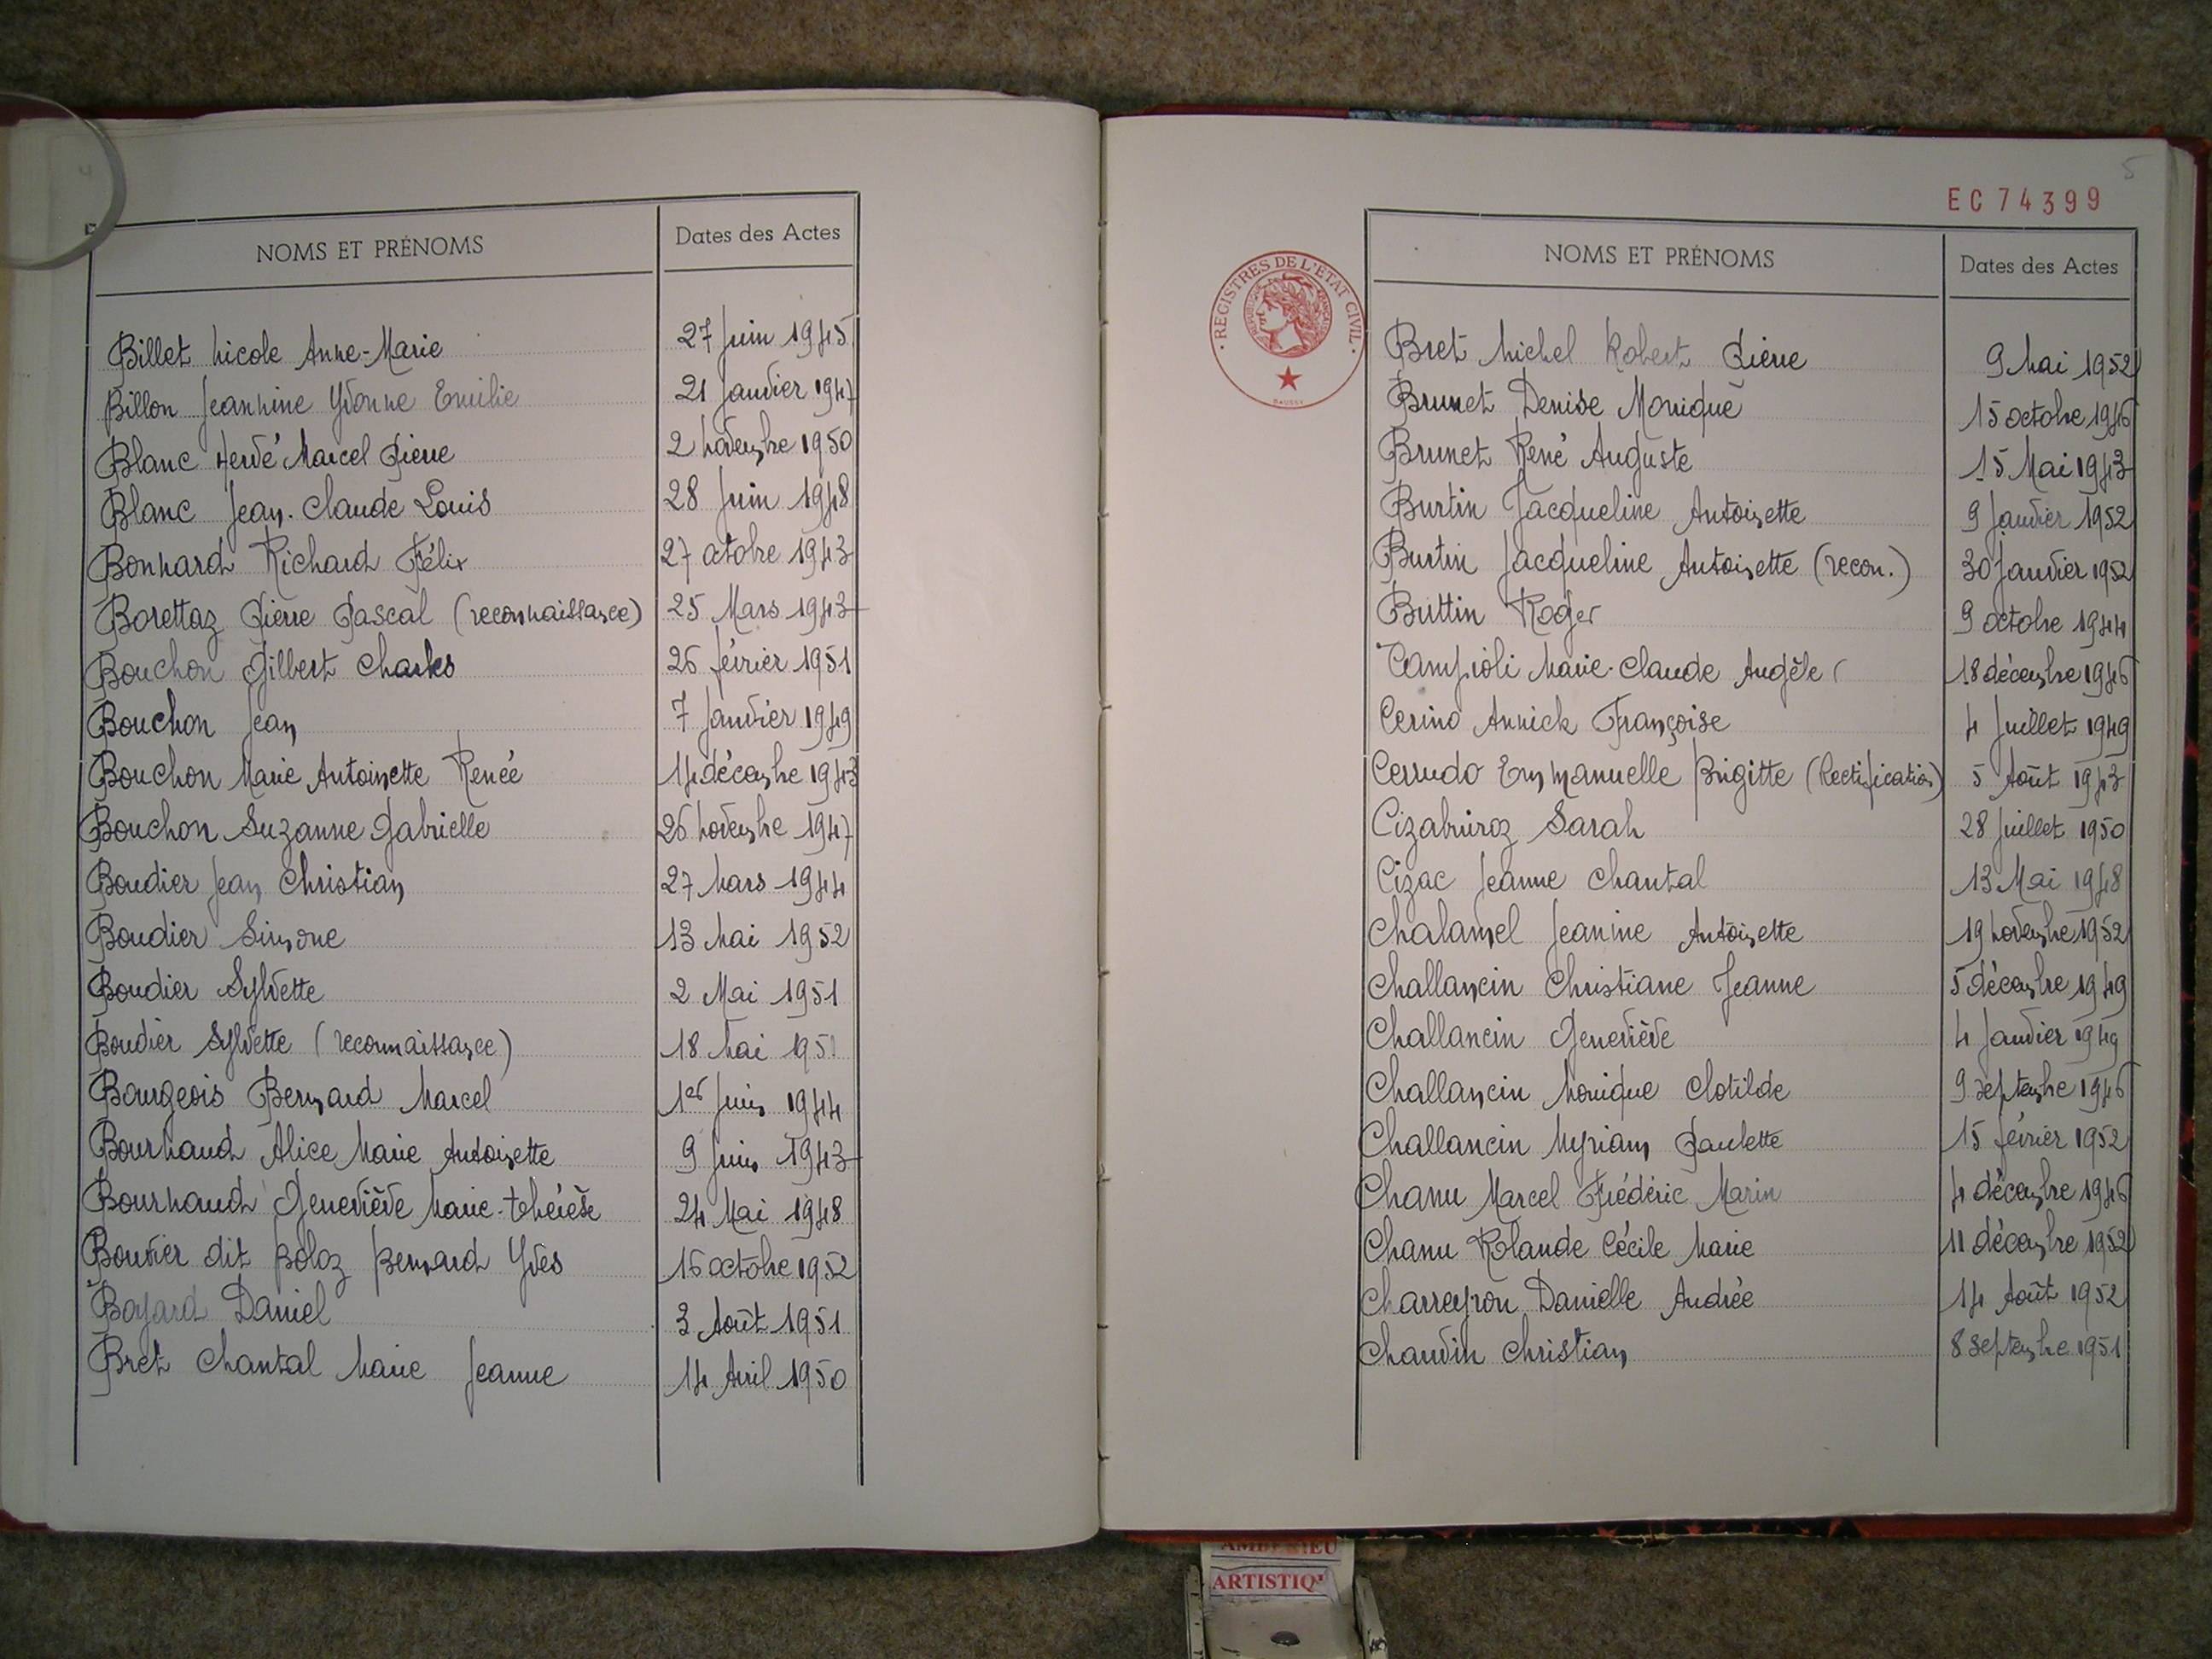 4
NOMS ET PRÉNOMS Dates des Actes
Billet Nicole Anne-Marie 27 Juin 1945
Billon Jeannine Yvonne Emilie 21 Janvier 1947
Blanc Hervé Marcel Pierre 2 Novembre 1950
Blanc Jean-Claude Louis 28 Juin 1948
Bonnard Richard Félix 27 octobre 1943
Borettaz Pierre Pascal (reconnaissance) 25 Mars 1943
Bouchon Gilbert Charles 26 février 1951
Bouchon Jean 7 Janvier 1949
Bouchon Marie Antoinette Renée 14 décembre 1943
Bouchon Suzanne Gabrielle 26 Novembre 1947
Boudier Jean Christian 27 Mars 1944
Boudier Simone 13 Mai 1952
Boudier Sylvette 2 Mai 1951
Boudier Sylvette (reconnaissance) 18 Mai 1951
Bourgeois Bernard Marcel 1er Juin 1944
Bournaud Alice Marie Antoinette 9 Juin 1943
Bournaud Geneviève Marie-thérèse 24 Mai 1948
Bouvier dit Boloz Bernard Yves 16 octobre 1952
Boyard Daniel 3 Août 1951
Bret Chantal Marie Jeanne 14 Avril 1950
5
EC 74399
REGISTRES DE L'ETAT CIVIL
NOMS ET PRÉNOMS Dates des Actes
Bret Michel Robert Pierre 9 Mai 1952
Brunet Denise Monique 15 octobre 1946
Brunet René Auguste 15 Mai 1943
Burtin Jacqueline Antoinette 9 Janvier 1952
Burtin Jacqueline Antoinette (recon.) 30 Janvier 1952
Buttin Roger 9 octobre 1944
Campioli Marie-Claude Angèle 18 décembre 1946
Cerino Annick Françoise 4 Juillet 1949
Cerrudo Emmanuelle Brigitte (Rectification) 5 Août 1943
Cizabuiroz Sarah 28 Juillet 1950
Cizac Jeanne Chantal 13 Mai 1948
Chalamel Jeanine Antoinette 19 Novembre 1952
Challancin Christiane Jeanne 5 décembre 1949
Challancin Geneviève 4 Janvier 1949
Challancin Monique Clotilde 9 septembre 1946
Challancin Myriam Paulette 15 février 1952
Chanu Marcel Frédéric Marin 4 décembre 1946
Chanu Rolande Cécile Marie 11 décembre 1952
Charreyron Danielle Andrée 14 Août 1952
Chauvin Christian 8 Septembre 1951
ARTISTIQ